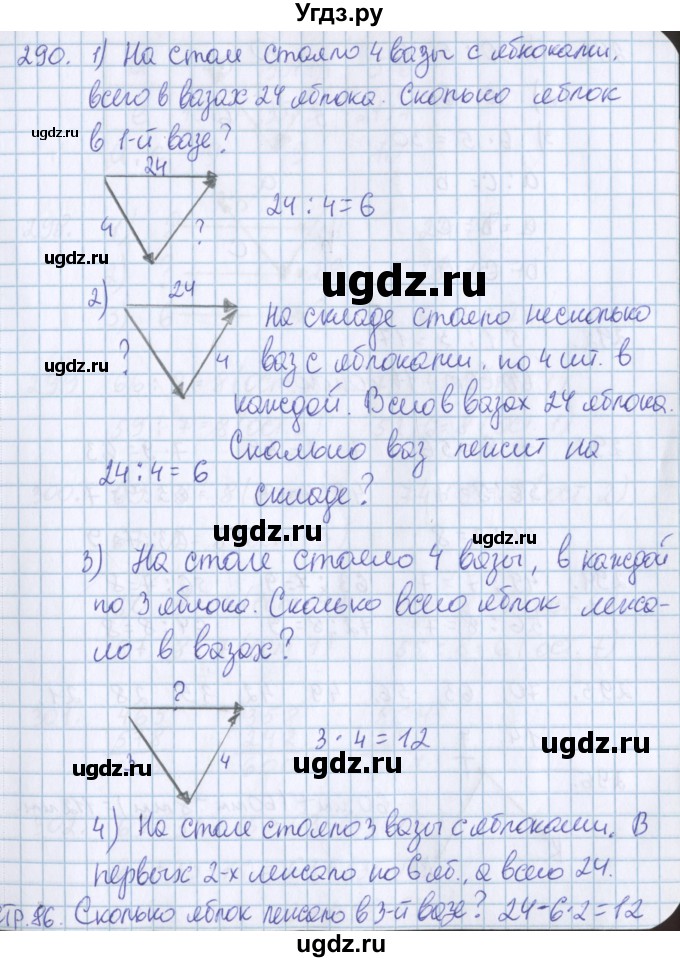 Угдз.ру
290. 1) На столе стояло 4 вазы с яблоками,
всего в вазах 24 яблока. Сколько яблок
ugdz.ru
в 1-й вазе?
24
4 ? 24 : 4 = 6
ugdz.ru
ugdz.ru
2) 24
На складе стояло несколько
? 4 ваз с яблоками, по 4 шт. в
ugdz.ru
каждой. Всего в вазах 24 яблока.
Сколько ваз лежит на
24 : 4 = 6
складе?
ugdz.ru
ugdz.ru
3) На столе стояло 4 вазы, в каждой
по 3 яблока. Сколько всего яблок лежа-
ло в вазах?
ugdz.ru
?
3 4 3 · 4 = 12
ugdz.ru
ugdz.ru
4) На столе стояло 3 вазы с яблоками. В
первых 2-х лежало по 6 яб., а всего 24.
тр.86. Сколько яблок лежало в 3-й вазе? 24 - 6 · 2 = 12
ugdz.ru